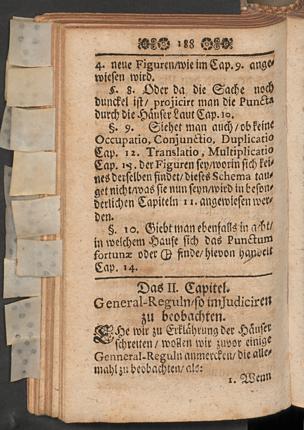 188
4. neue Figuren/wie im Cap. 9. ange-
wiesen wird.
§. 8. Oder da die Sache noch
dunckel ist/ projicirt man die Puncta
durch die Häuser Laut Cap. 10.
§. 9. Siehet man auch/ ob keine
Occupatio, Conjunctio, Duplicatio
Cap. 12. Translatio, Multiplicatio
Cap. 13. der Figuren sey/worin sich kei-
nes derselben findet/ dieses Schema tau-
get nicht/was sie nun seyn/wird in beson-
derlichen Capiteln 11. angewiesen wer-
den.
§. 10. Giebt man ebenfalls in acht/
in welchem Hause sich das Punctum
fortunæ oder ⊕ finde/ hievon handelt
Cap. 14.
Das II. Capitel.
General-Reguln/so im Judiciren
zu beobachten.
EHe wir zu Erklährung der Häuser
schreiten/ wollen wir zuvor einige
Genneral-Reguln anmercken/ die alle-
mahl zu beobachten/ als:
1. Wenn